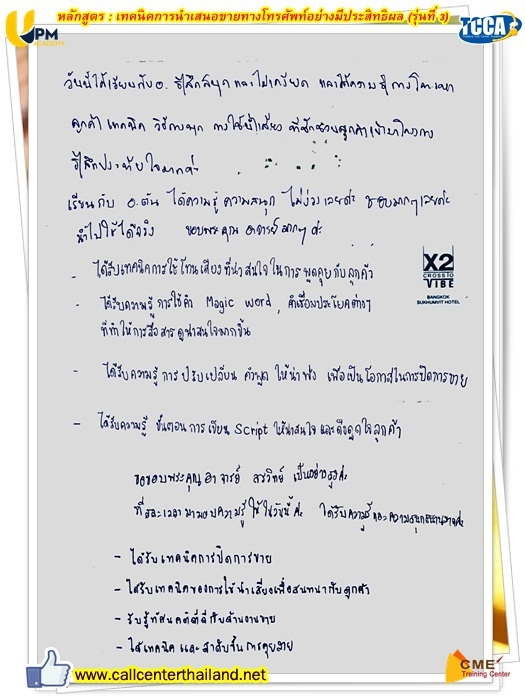 หลักสูตร : เทคนิคการนำเสนอขายทางโทรศัพท์อย่างมีประสิทธิผล (รุ่นที่ 3)
UPM
ACADEMY
TCCA
วันนี้ได้เรียนกับ อ. รู้สึกสนุก และไม่เครียด และได้ความรู้ การโทรหา
ลูกค้า เทคนิค วิธีการพูด การใช้น้ำเสียง
รู้สึกประทับใจมากค่ะ
เรียนกับ อ.ต้น ได้ความรู้ ความสนุก ไม่ง่วงเลยค่ะ ชอบมากๆเลยค่ะ
นำไปใช้ได้จริง ขอบพระคุณ อาจารย์มากๆ ค่ะ
- ได้รับเทคนิคการใช้โทนเสียงที่น่าสนใจในการพูดคุยกับลูกค้า
X2
CROSSTO
VIBE
BANGKOK
SUKHUMVIT HOTEL
- ได้รับความรู้การใช้คำ Magic word, คำเชื่อมประโยคต่างๆ
ที่ทำให้การสื่อสารดูน่าสนใจมากขึ้น
- ได้รับความรู้การปรับเปลี่ยน คำพูด ให้น่าฟัง เพื่อเป็นโอกาสในการปิดการขาย
- ได้รับความรู้ ขั้นตอนการเขียน Script ให้น่าสนใจ และดึงดูดใจลูกค้า
ขอขอบพระคุณอาจารย์ สรวิทย์ เป็นอย่างสูงค่ะ
ที่สละเวลามามอบความรู้ให้ในวันนี้ค่ะ ได้รับความรู้และความสนุกสนานมากค่ะ
- ได้รับเทคนิคการปิดการขาย
- ได้รับเทคนิคของการใช้น้ำเสียงเพื่อสนทนากับลูกค้า
- รับรู้ทัศนคติที่ดีกับด้านงานขาย
- ได้เทคนิค และลำดับขั้นการคุยสาย
www.callcenterthailand.net
CME
Training Center